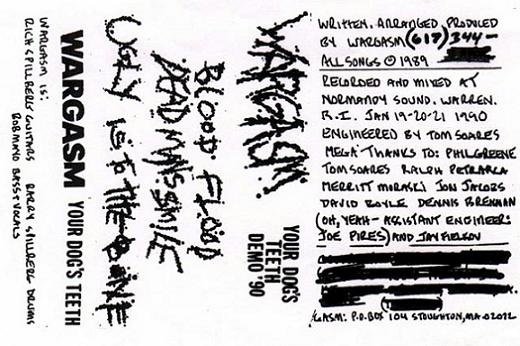 WARGASM
YOUR DOG'S
TEETH
DEMO '90
BLOOD FLOOD
DEAD MAN'S SMILE
UGLY IS TO THE BONE
WARGASM YOUR DOG'S TEETH
WARGASM IS:
RICH SPILLBERG GUITARS BARRY SPILLBERG DRUMS
BOB MAYO BASS + VOCALS
WRITTEN, ARRANGED, PRODUCED
BY WARGASM (617) 344-
ALL SONGS © 1989
RECORDED AND MIXED AT
NORMANDY SOUND, WARREN,
R.I. JAN 19-20-21 1990
ENGINEERED BY TOM SOARES
MEGA THANKS TO: PHIL GREENE
TOM SOARES RALPH PETRARCA
MERRITT JON JACOBS
DAVID BOYLE DENNIS BRENNAN
(OH, YEAH - ASSISTANT ENGINEER:
JOE PIRES) AND JAY FIELKOV
GASM: P.O. BOX 104 STOUGHTON, MA. 02072